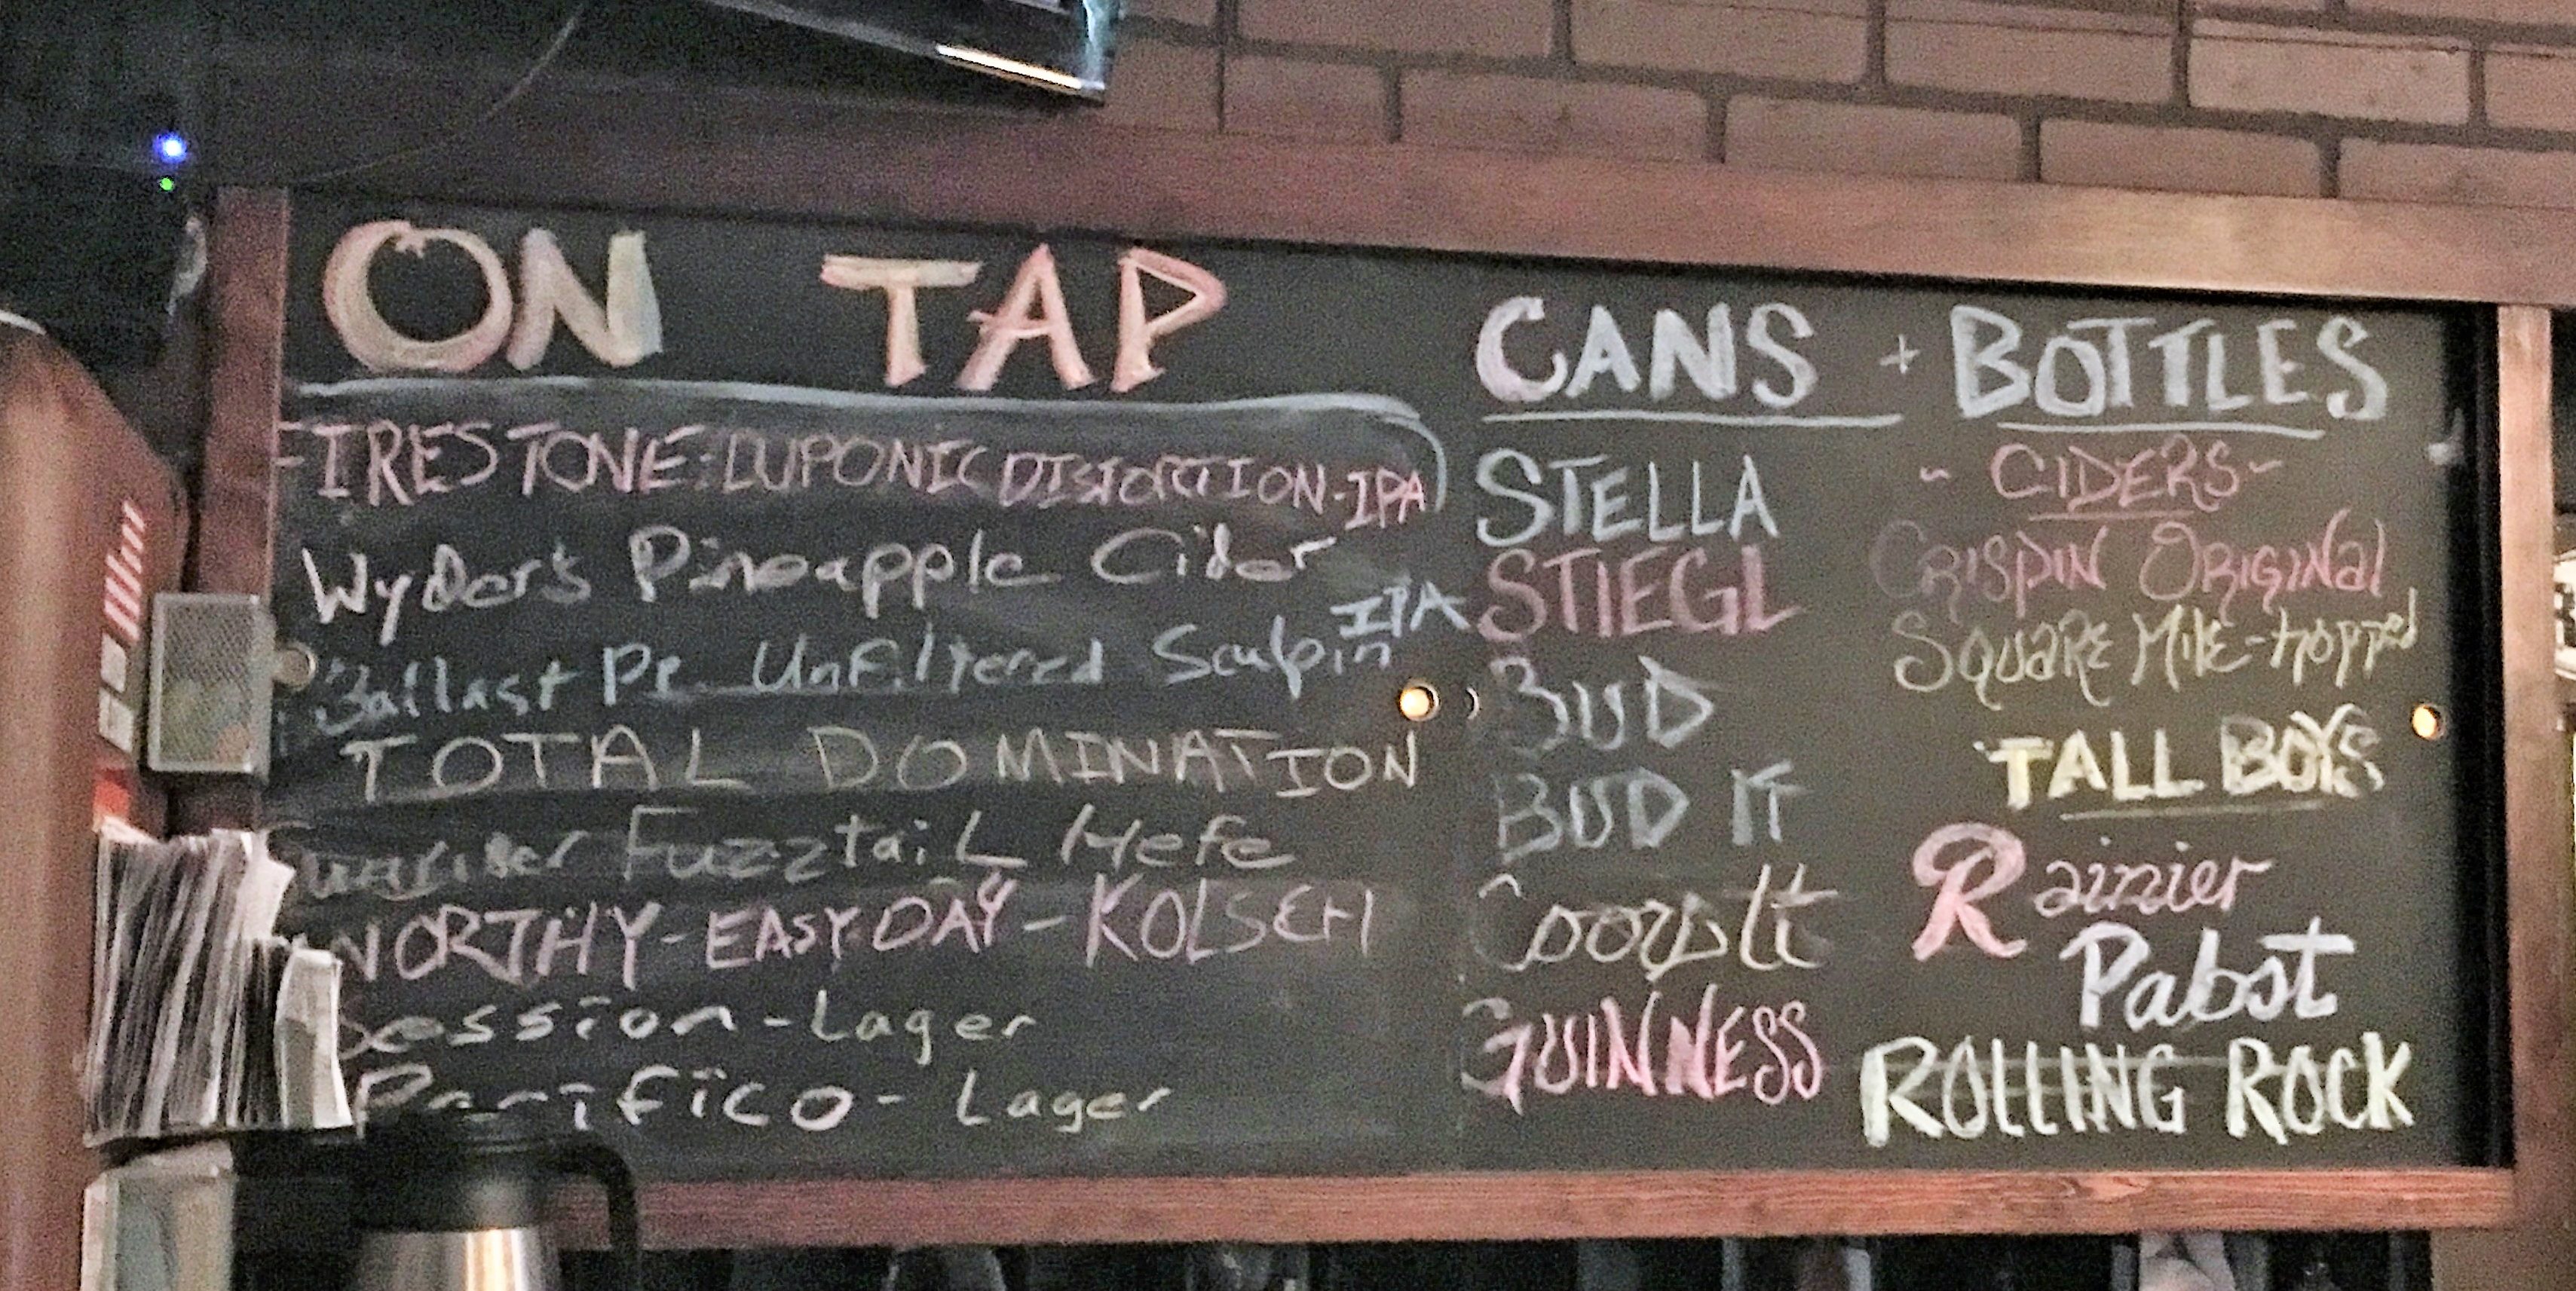 ON TAP
FIRESTONE: LUPONIC DISTORTION-IPA
Wyder's Pineapple Cider
Ballast Pt. Unfiltered Sculpin IPA
TOTAL DOMINATION
Sunriver Fuzztail Hefe
WORTHY-EASY DAY-KOLSCH
Session-Lager
Pacifico-Lager
CANS + BOTTLES
STELLA
STIEGL
BUD
BUD LT
Coors Lt
GUINNESS
~ CIDERS ~
CRISPIN ORIGINal
SQUARE MILE-Hopped
TALL BOYS
Rainier
Pabst
ROLLING ROCK